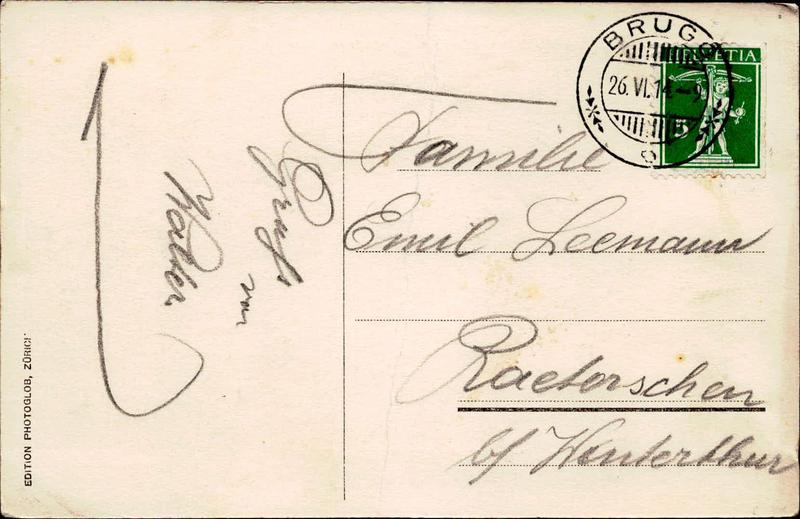 Gruss
von
Walter
Familie
Emil Leemann
Raeterschen
b/ Winterthur
BRUGG
26.VI.14-9
HELVETIA
5
EDITION PHOTOGLOB, ZÜRICH